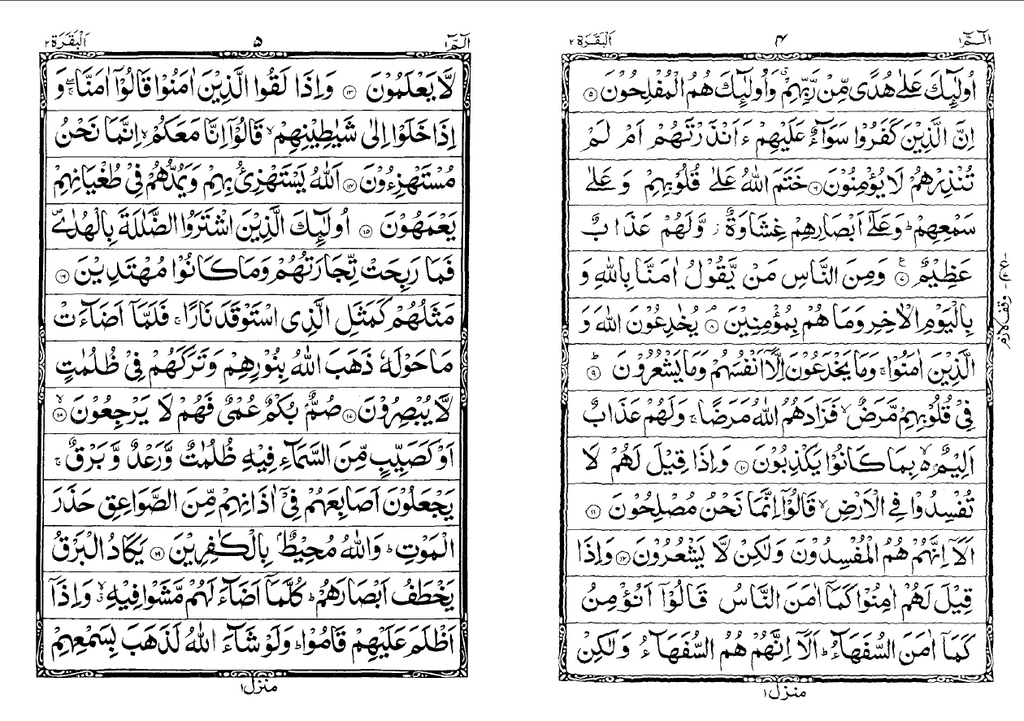 الٓمّٓ ١
۴
اَلْبَقَرَة ٢
اُولٰٓئِكَ عَلٰى هُدًى مِّنْ رَّبِّهِمْ وَاُولٰٓئِكَ هُمُ الْمُفْلِحُوْنَ ۝٥
اِنَّ الَّذِيْنَ كَفَرُوْا سَوَآءٌ عَلَيْهِمْ ءَاَنْذَرْتَهُمْ اَمْ لَمْ
تُنْذِرْهُمْ لَا يُؤْمِنُوْنَ ۝٦ خَتَمَ اللّٰهُ عَلٰى قُلُوْبِهِمْ وَعَلٰى
سَمْعِهِمْ ؕ وَعَلٰٓى اَبْصَارِهِمْ غِشَاوَةٌ ز وَّلَهُمْ عَذَابٌ
عَظِيْمٌ ۝٧ وَمِنَ النَّاسِ مَنْ يَّقُوْلُ اٰمَنَّا بِاللّٰهِ وَ
بِالْيَوْمِ الْاٰخِرِ وَمَا هُمْ بِمُؤْمِنِيْنَ ۝٨ يُخٰدِعُوْنَ اللّٰهَ وَ
الَّذِيْنَ اٰمَنُوْا ۚ وَمَا يَخْدَعُوْنَ اِلَّآ اَنْفُسَهُمْ وَمَا يَشْعُرُوْنَ ۝٩ؕ
فِيْ قُلُوْبِهِمْ مَّرَضٌ ۙ فَزَادَهُمُ اللّٰهُ مَرَضًا ۚ وَلَهُمْ عَذَابٌ
اَلِيْمٌۢ ۙ بِمَا كَانُوْا يَكْذِبُوْنَ ۝١٠ وَاِذَا قِيْلَ لَهُمْ لَا
تُفْسِدُوْا فِي الْاَرْضِ ۙ قَالُوْٓا اِنَّمَا نَحْنُ مُصْلِحُوْنَ ۝١١
اَلَآ اِنَّهُمْ هُمُ الْمُفْسِدُوْنَ وَلٰكِنْ لَّا يَشْعُرُوْنَ ۝١٢ وَاِذَا
قِيْلَ لَهُمْ اٰمِنُوْا كَمَآ اٰمَنَ النَّاسُ قَالُوْٓا اَنُؤْمِنُ
كَمَآ اٰمَنَ السُّفَهَآءُ ؕ اَلَآ اِنَّهُمْ هُمُ السُّفَهَآءُ وَلٰكِنْ
منزل ١
وقف لازم
الٓمّٓ ١
۵
اَلْبَقَرَة ٢
لَّا يَعْلَمُوْنَ ۝١٣ وَاِذَا لَقُوا الَّذِيْنَ اٰمَنُوْا قَالُوْٓا اٰمَنَّا ۚ وَ
اِذَا خَلَوْا اِلٰى شَيٰطِيْنِهِمْ ۙ قَالُوْٓا اِنَّا مَعَكُمْ ۙ اِنَّمَا نَحْنُ
مُسْتَهْزِءُوْنَ ۝١٤ اَللّٰهُ يَسْتَهْزِئُ بِهِمْ وَيَمُدُّهُمْ فِيْ طُغْيَانِهِمْ
يَعْمَهُوْنَ ۝١٥ اُولٰٓئِكَ الَّذِيْنَ اشْتَرَوُا الضَّلٰلَةَ بِالْهُدٰى ۠
فَمَا رَبِحَتْ تِّجَارَتُهُمْ وَمَا كَانُوْا مُهْتَدِيْنَ ۝١٦
مَثَلُهُمْ كَمَثَلِ الَّذِى اسْتَوْقَدَ نَارًا ۚ فَلَمَّآ اَضَآءَتْ
مَا حَوْلَهٗ ذَهَبَ اللّٰهُ بِنُوْرِهِمْ وَتَرَكَهُمْ فِيْ ظُلُمٰتٍ
لَّا يُبْصِرُوْنَ ۝١٧ صُمٌّۢ بُكْمٌ عُمْيٌ فَهُمْ لَا يَرْجِعُوْنَ ۝١٨ۙ
اَوْ كَصَيِّبٍ مِّنَ السَّمَآءِ فِيْهِ ظُلُمٰتٌ وَّرَعْدٌ وَّبَرْقٌ ۚ
يَجْعَلُوْنَ اَصَابِعَهُمْ فِيْٓ اٰذَانِهِمْ مِّنَ الصَّوَاعِقِ حَذَرَ
الْمَوْتِ ؕ وَاللّٰهُ مُحِيْطٌۢ بِالْكٰفِرِيْنَ ۝١٩ يَكَادُ الْبَرْقُ
يَخْطَفُ اَبْصَارَهُمْ ؕ كُلَّمَآ اَضَآءَ لَهُمْ مَّشَوْا فِيْهِ ۙ وَاِذَآ
اَظْلَمَ عَلَيْهِمْ قَامُوْا ؕ وَلَوْ شَآءَ اللّٰهُ لَذَهَبَ بِسَمْعِهِمْ
منزل ١